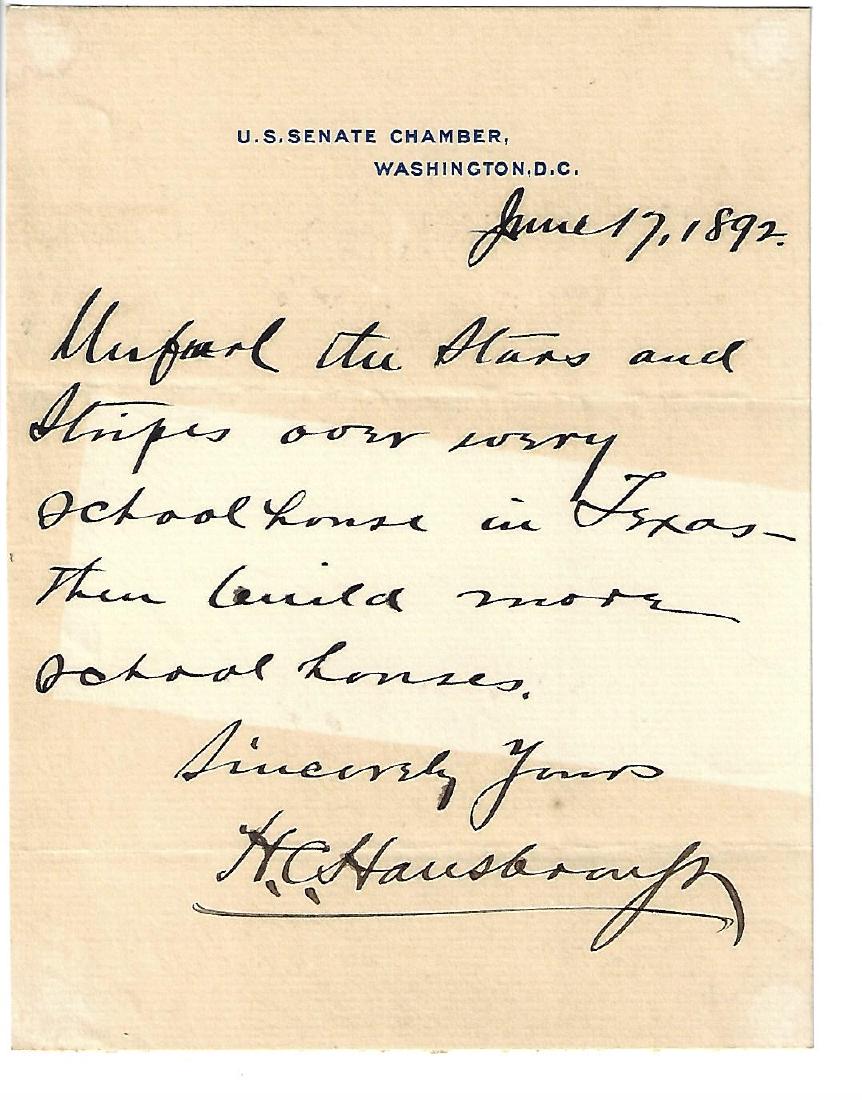 U.S. SENATE CHAMBER,
WASHINGTON, D.C.
June 17, 1892.
Unfurl the Stars and
Stripes over every
school house in Texas —
then build more
school houses.
Sincerely Yours
H.C. Hansbrough